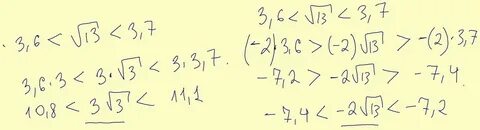 3,6 < √13 < 3,7
3,6·3 < 3·√3 < 3·3,7.
10,8 < 3√3 < 11,1
3,6 < √13 < 3,7
(-2)·3,6 > (-2)√13 > -(2)·3,7
-7,2 > -2√13 > -7,4
-7,4 < -2√13 < -7,2